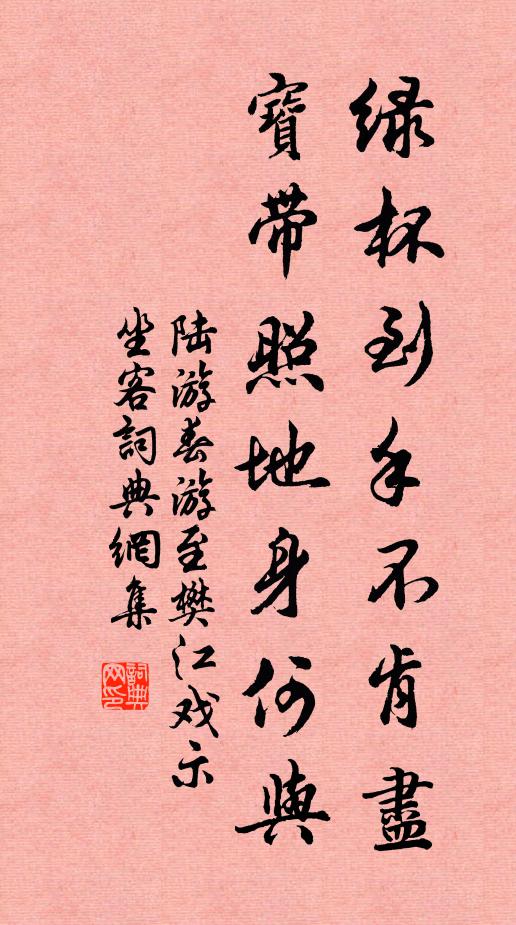 绿杯到手不肯盡
寶带照地身何與
陆游春游至樊江戏示
坐客詞典網集
詞典网印